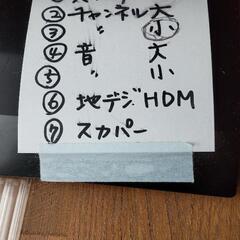 ② チャンネル 大
③ 〃 小
④ 音 大
⑤ 〃 小
⑥ 地デジHDM
⑦ スカパー